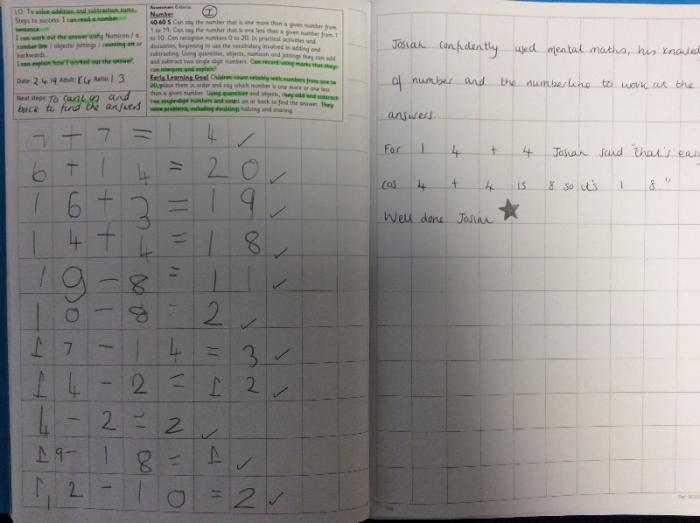 LO: To solve addition and subtraction sums.
Steps to success: I can read a number
sentence.
I can work out the answer using Numicon / a
number line / objects/ jottings / counting on or
backwards.
I can explain how I worked out the answer.
Date: 2.4.19 Adult: KG Ratio: 1:3
Next steps: To count on and
back to find the answers
Assessment Criteria
Number I
40-60 S Can say the number that is one more than a given number from
1 to 19. Can say the number that is one less than a given number from 1
to 10. Can recognise numbers 0 to 20. In practical activities and
discussion, beginning to use the vocabulary involved in adding and
subtracting. Using quantities, objects, numicon and jottings they can add
and subtract two single digit numbers. Can record using marks that they
can interpret and explain
Early Learning Goal Children count reliably with numbers from one to
20, place them in order and say which number is one more or one less
than a given number. Using quantities and objects, they add and subtract
two single-digit numbers and count on or back to find the answer. They
solve problems, including doubling, halving and sharing.
7 = 4 ✓
6 + 14 = 20 ✓
16 + 3 = 19 ✓
14 + 4 = 18 ✓
19 - 8 = 11 ✓
10 - 8 = 2 ✓
17 - 14 = 3 ✓
14 - 2 = 12 ✓
4 - 2 = 2 ✓
19 - 18 = 1 ✓
12 - 10 = 2 ✓
Josiah confidently used mental maths, his
of number and the numberline to work out the
answers.
For 14 + 4 Josiah said "that's easy
cos 4 + 4 is 8 so it's 18."
Well done Josiah